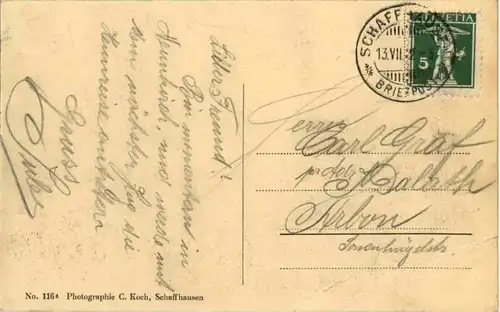 Lieber Freund!
Bin momentan in
Neunkirch, und werde mit
dem nächsten Zug die
Heimreise antreten.
Gruss
SCHAFFHAUSEN
13.VII.
BRIEFPOST
HELVETIA
5
Herrn
Carl Graf
Arbon
No. 116a Photographie C. Koch, Schaffhausen